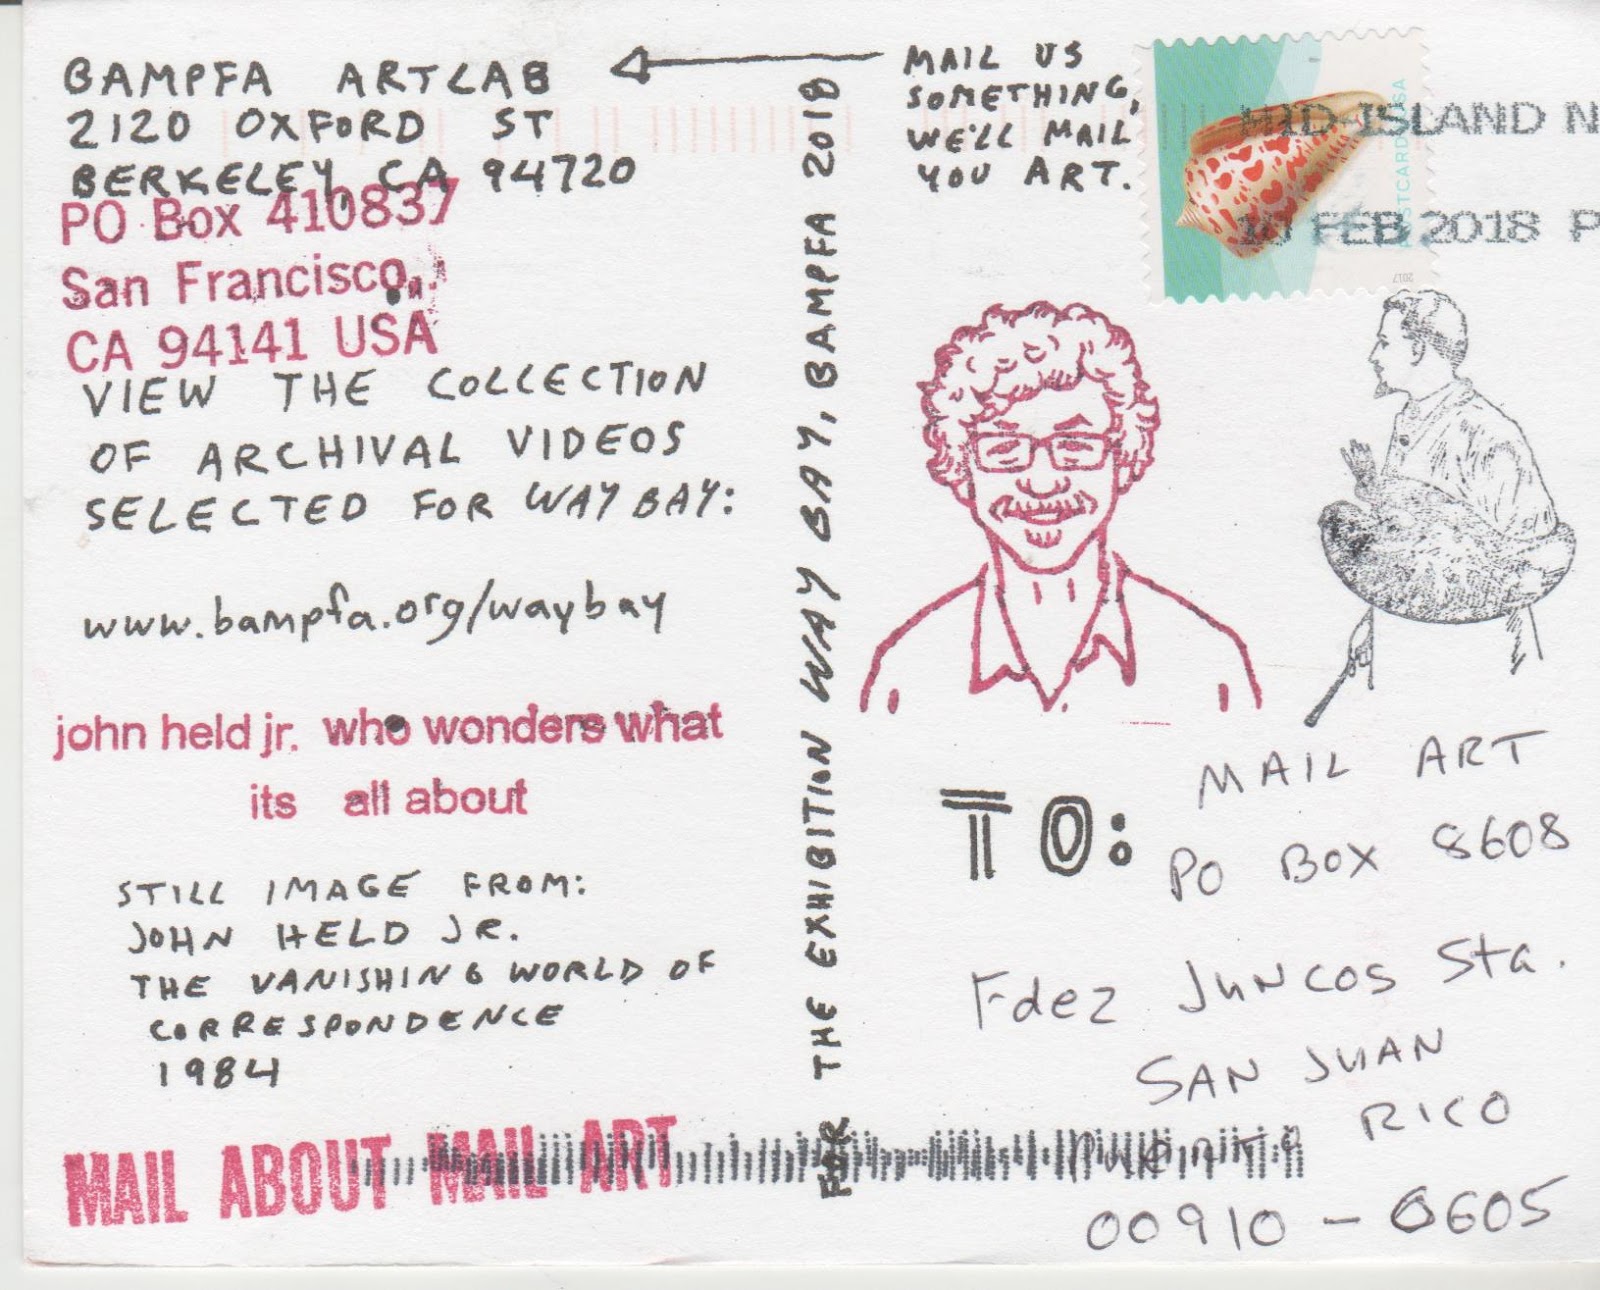 BAMPFA ARTLAB
2120 OXFORD ST
BERKELEY, CA 94720
PO Box 410837
San Francisco,
CA 94141 USA
VIEW THE COLLECTION
OF ARCHIVAL VIDEOS
SELECTED FOR WAY BAY:
www.bampfa.org/waybay
john held jr. who wonders what
its all about
STILL IMAGE FROM:
JOHN HELD JR.
THE VANISHING WORLD OF
CORRESPONDENCE
1984
MAIL ABOUT MAIL ART
FOR THE EXHIBITION WAY BAY, BAMPFA 2018
MAIL US
SOMETHING,
WE'LL MAIL
YOU ART.
POSTCARD USA
2017
MID-ISLAND N
10 FEB 2018 P
TO:
MAIL ART
PO BOX 8608
Fdez JUNCOS Sta.
SAN JUAN
Puerto RICO
00910 - 0605